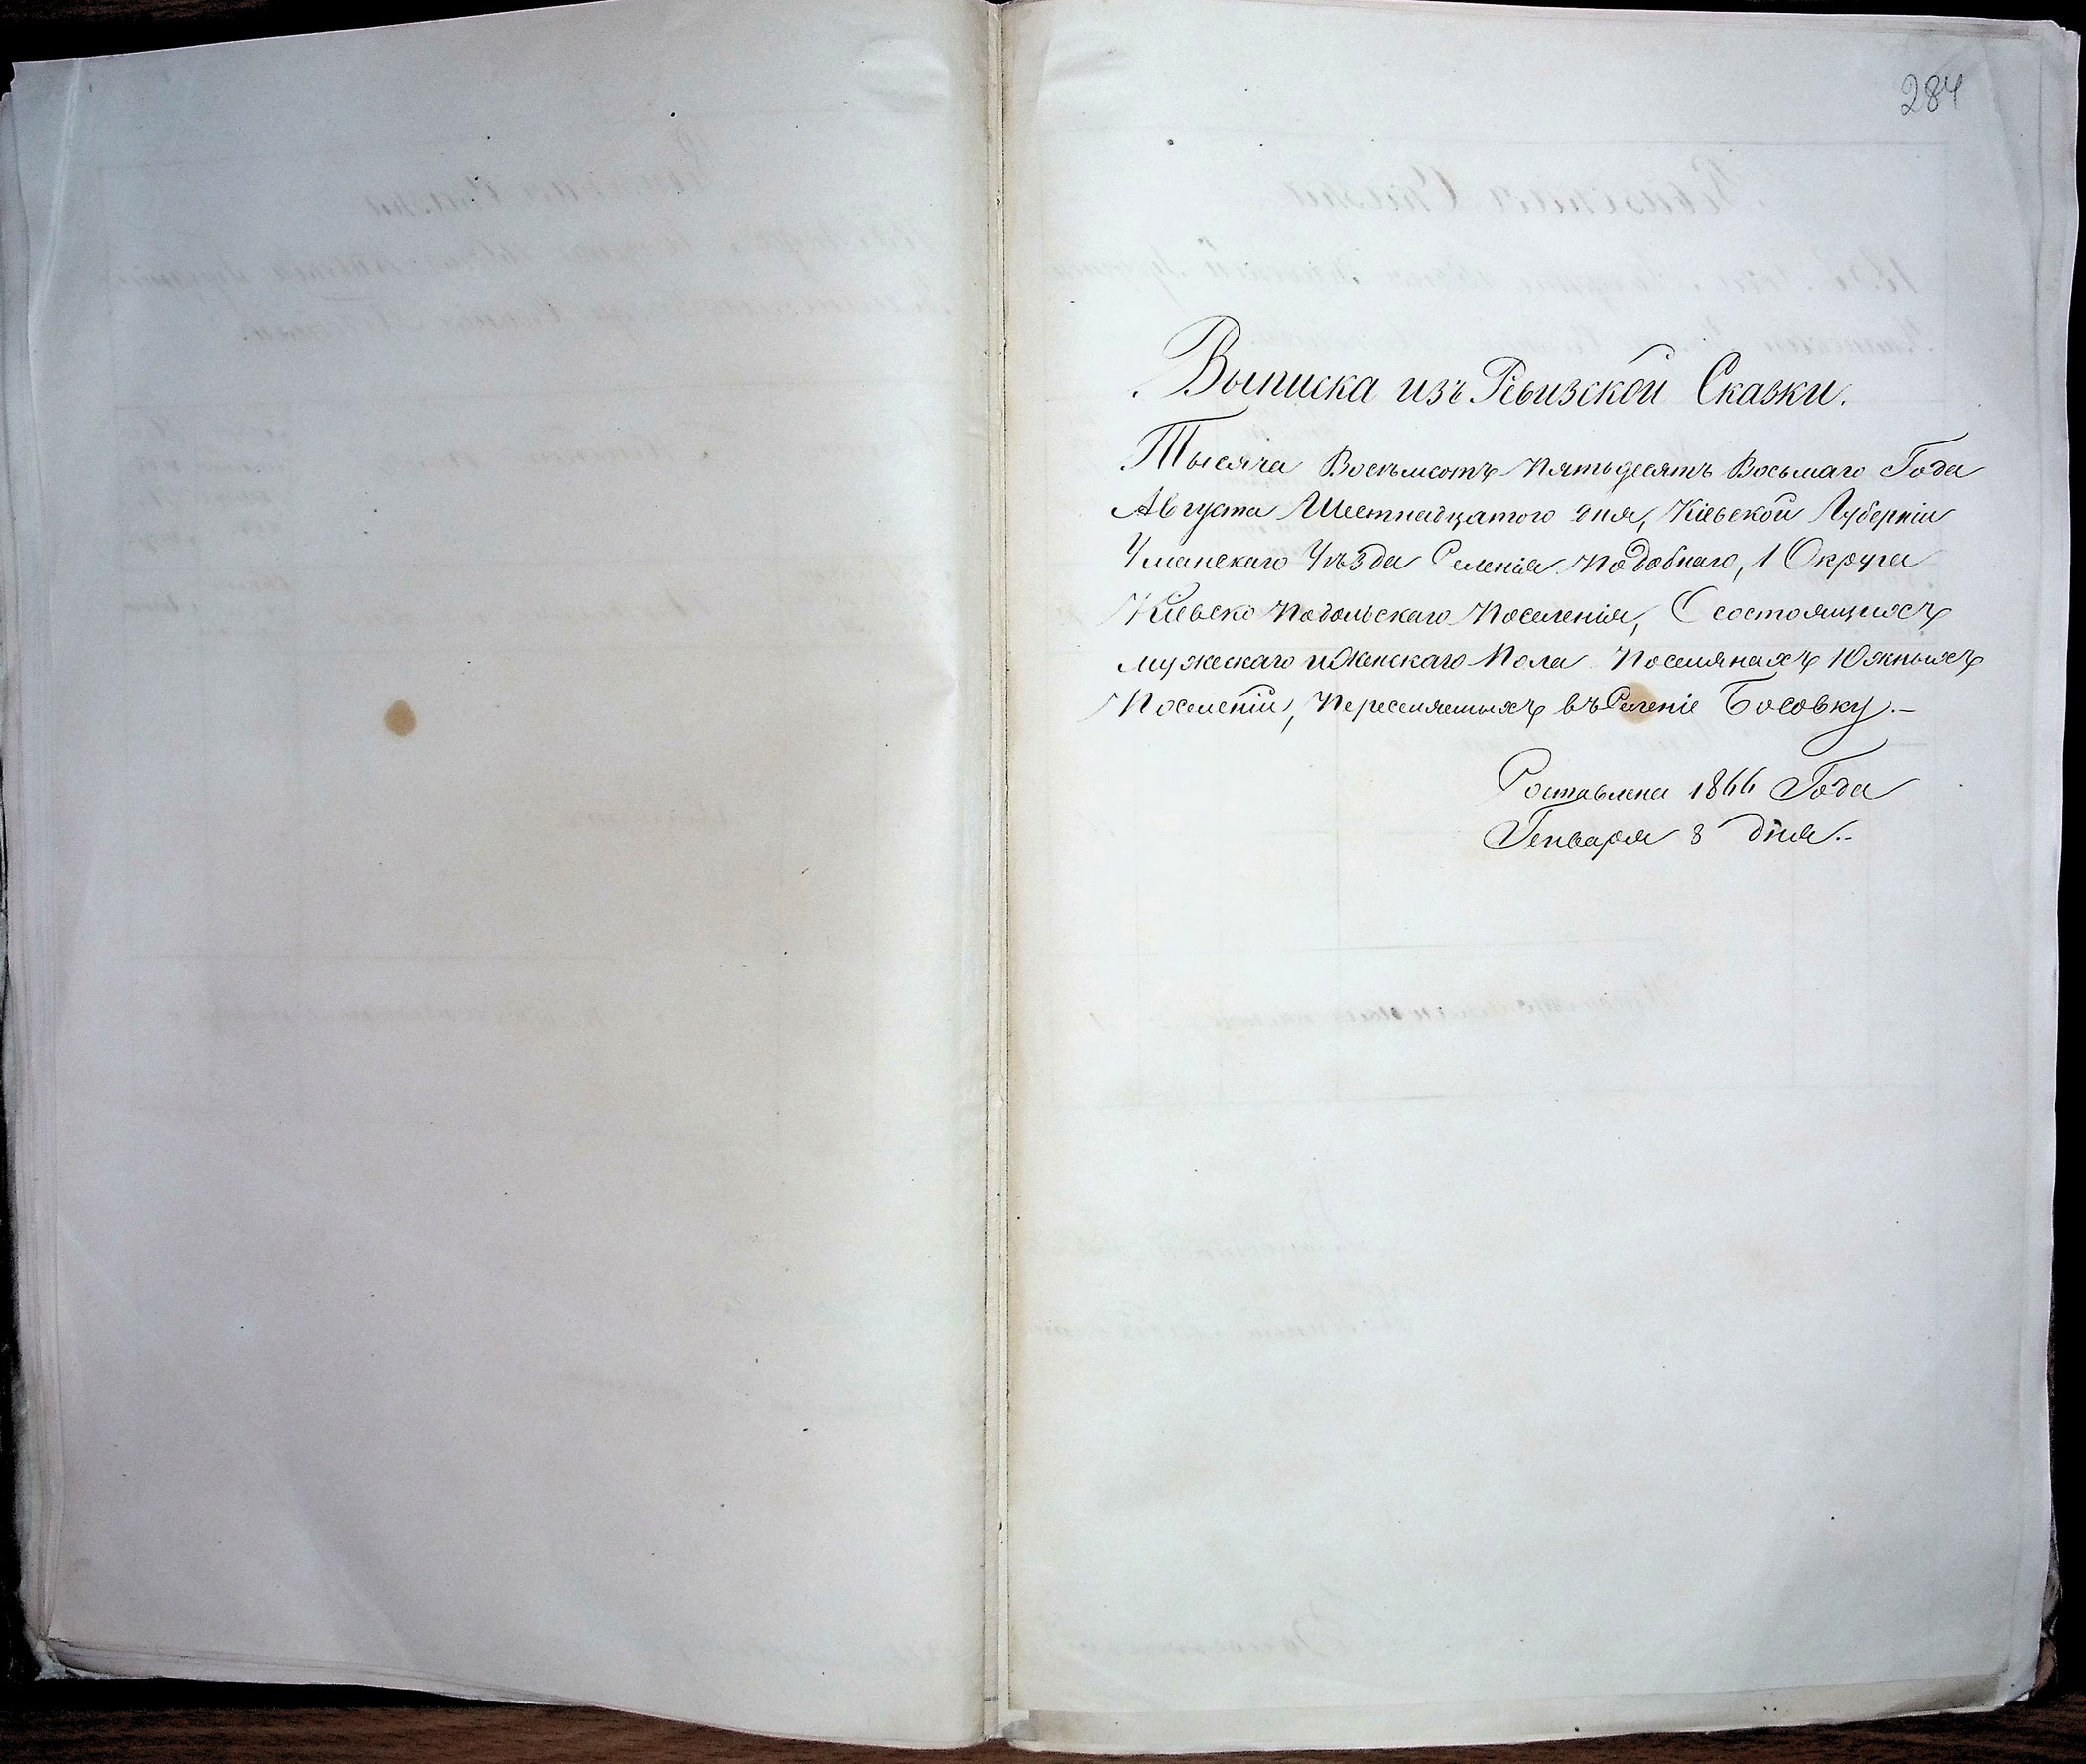 284
Выписка изъ Ревизской Сказки.
Тысяча Восемьсотъ Пятьдесятъ Восьмаго Года
Августа Шестнадцатого дня, Кіевской Губерніи
Уманскаго Уѣзда Селенія Подобнаго, 1 Округа
Кіевско Подольскаго Поселенія, О состоящихъ
мужескаго и Женскаго Пола Поселянахъ Южныхъ
Поселеній, Переселяемыхъ въ Селеніе Босовку.—
Составлена 1866 Года
Генваря 8 дня.—